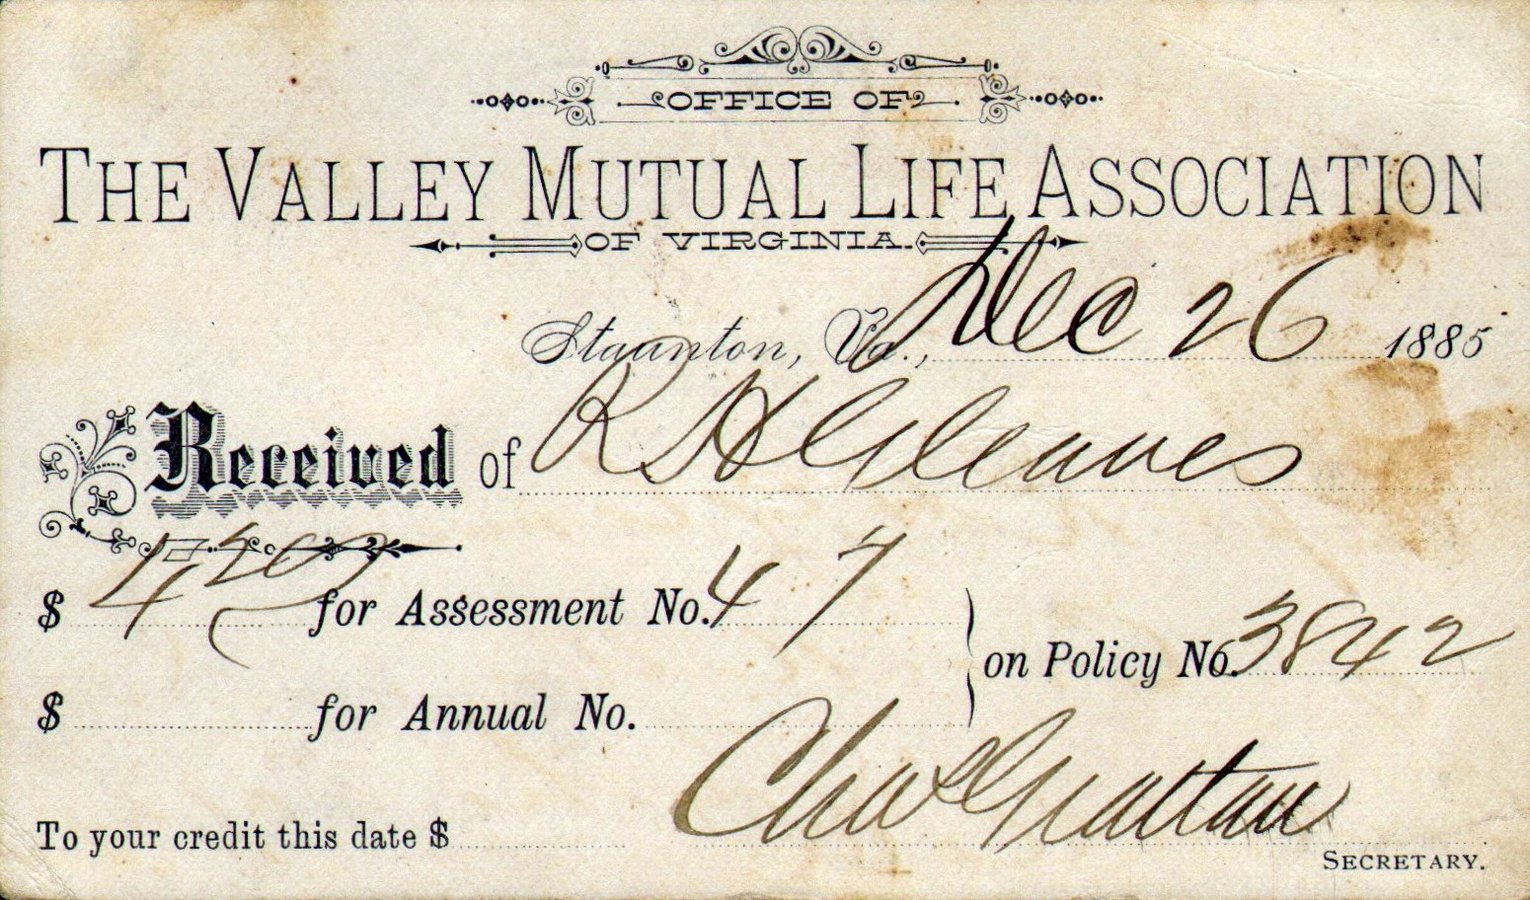 OFFICE OF
THE VALLEY MUTUAL LIFE ASSOCIATION
OF VIRGINIA.
Staunton, Va., Dec 26 1885
Received of R H Gleaves
$ 4 for Assessment No. 47
on Policy No. 3842
$ for Annual No.
Chas Grattan
To your credit this date $
SECRETARY.